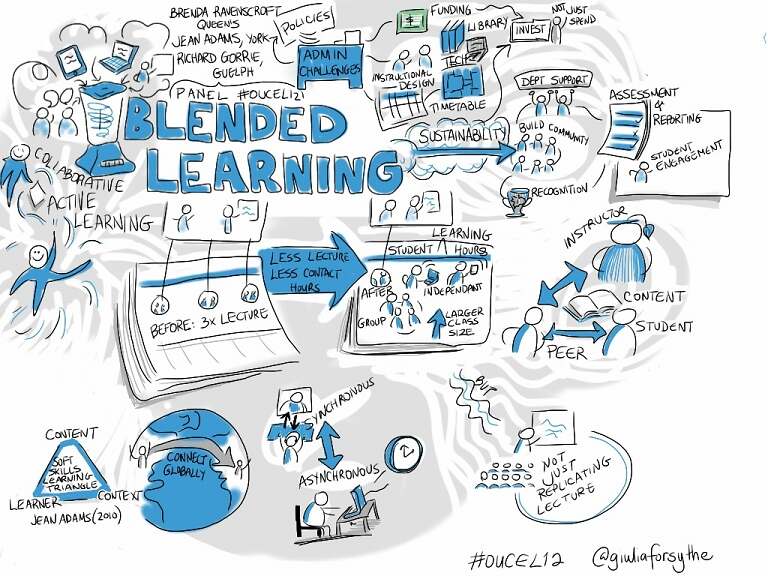 BRENDA RAVENSCROFT
QUEEN'S
JEAN ADAMS, YORK
RICHARD GORRIE,
GUELPH
PANEL #OUCEL12
BLENDED
LEARNING
POLICIES
ADMIN
CHALLENGES
FUNDING
LIBRARY
TECH
INSTRUCTIONAL
DESIGN
TIMETABLE
INVEST
NOT JUST
SPEND
SUSTAINABILITY
DEPT SUPPORT
BUILD COMMUNITY
RECOGNITION
ASSESSMENT
&
REPORTING
STUDENT
ENGAGEMENT
COLLABORATIVE
ACTIVE
LEARNING
BEFORE: 3X LECTURE
LESS LECTURE
LESS CONTACT
HOURS
LEARNING
STUDENT HOURS
AFTER
INDEPENDANT
GROUP
LARGER
CLASS
SIZE
INSTRUCTOR
CONTENT
STUDENT
PEER
CONTENT
SOFT
SKILLS
LEARNING
TRIANGLE
LEARNER
CONTEXT
JEAN ADAMS (2010)
CONNECT
GLOBALLY
SYNCHRONOUS
ASYNCHRONOUS
BUT
NOT
JUST
REPLICATING
LECTURE
#OUCEL12
@giuliaforsythe